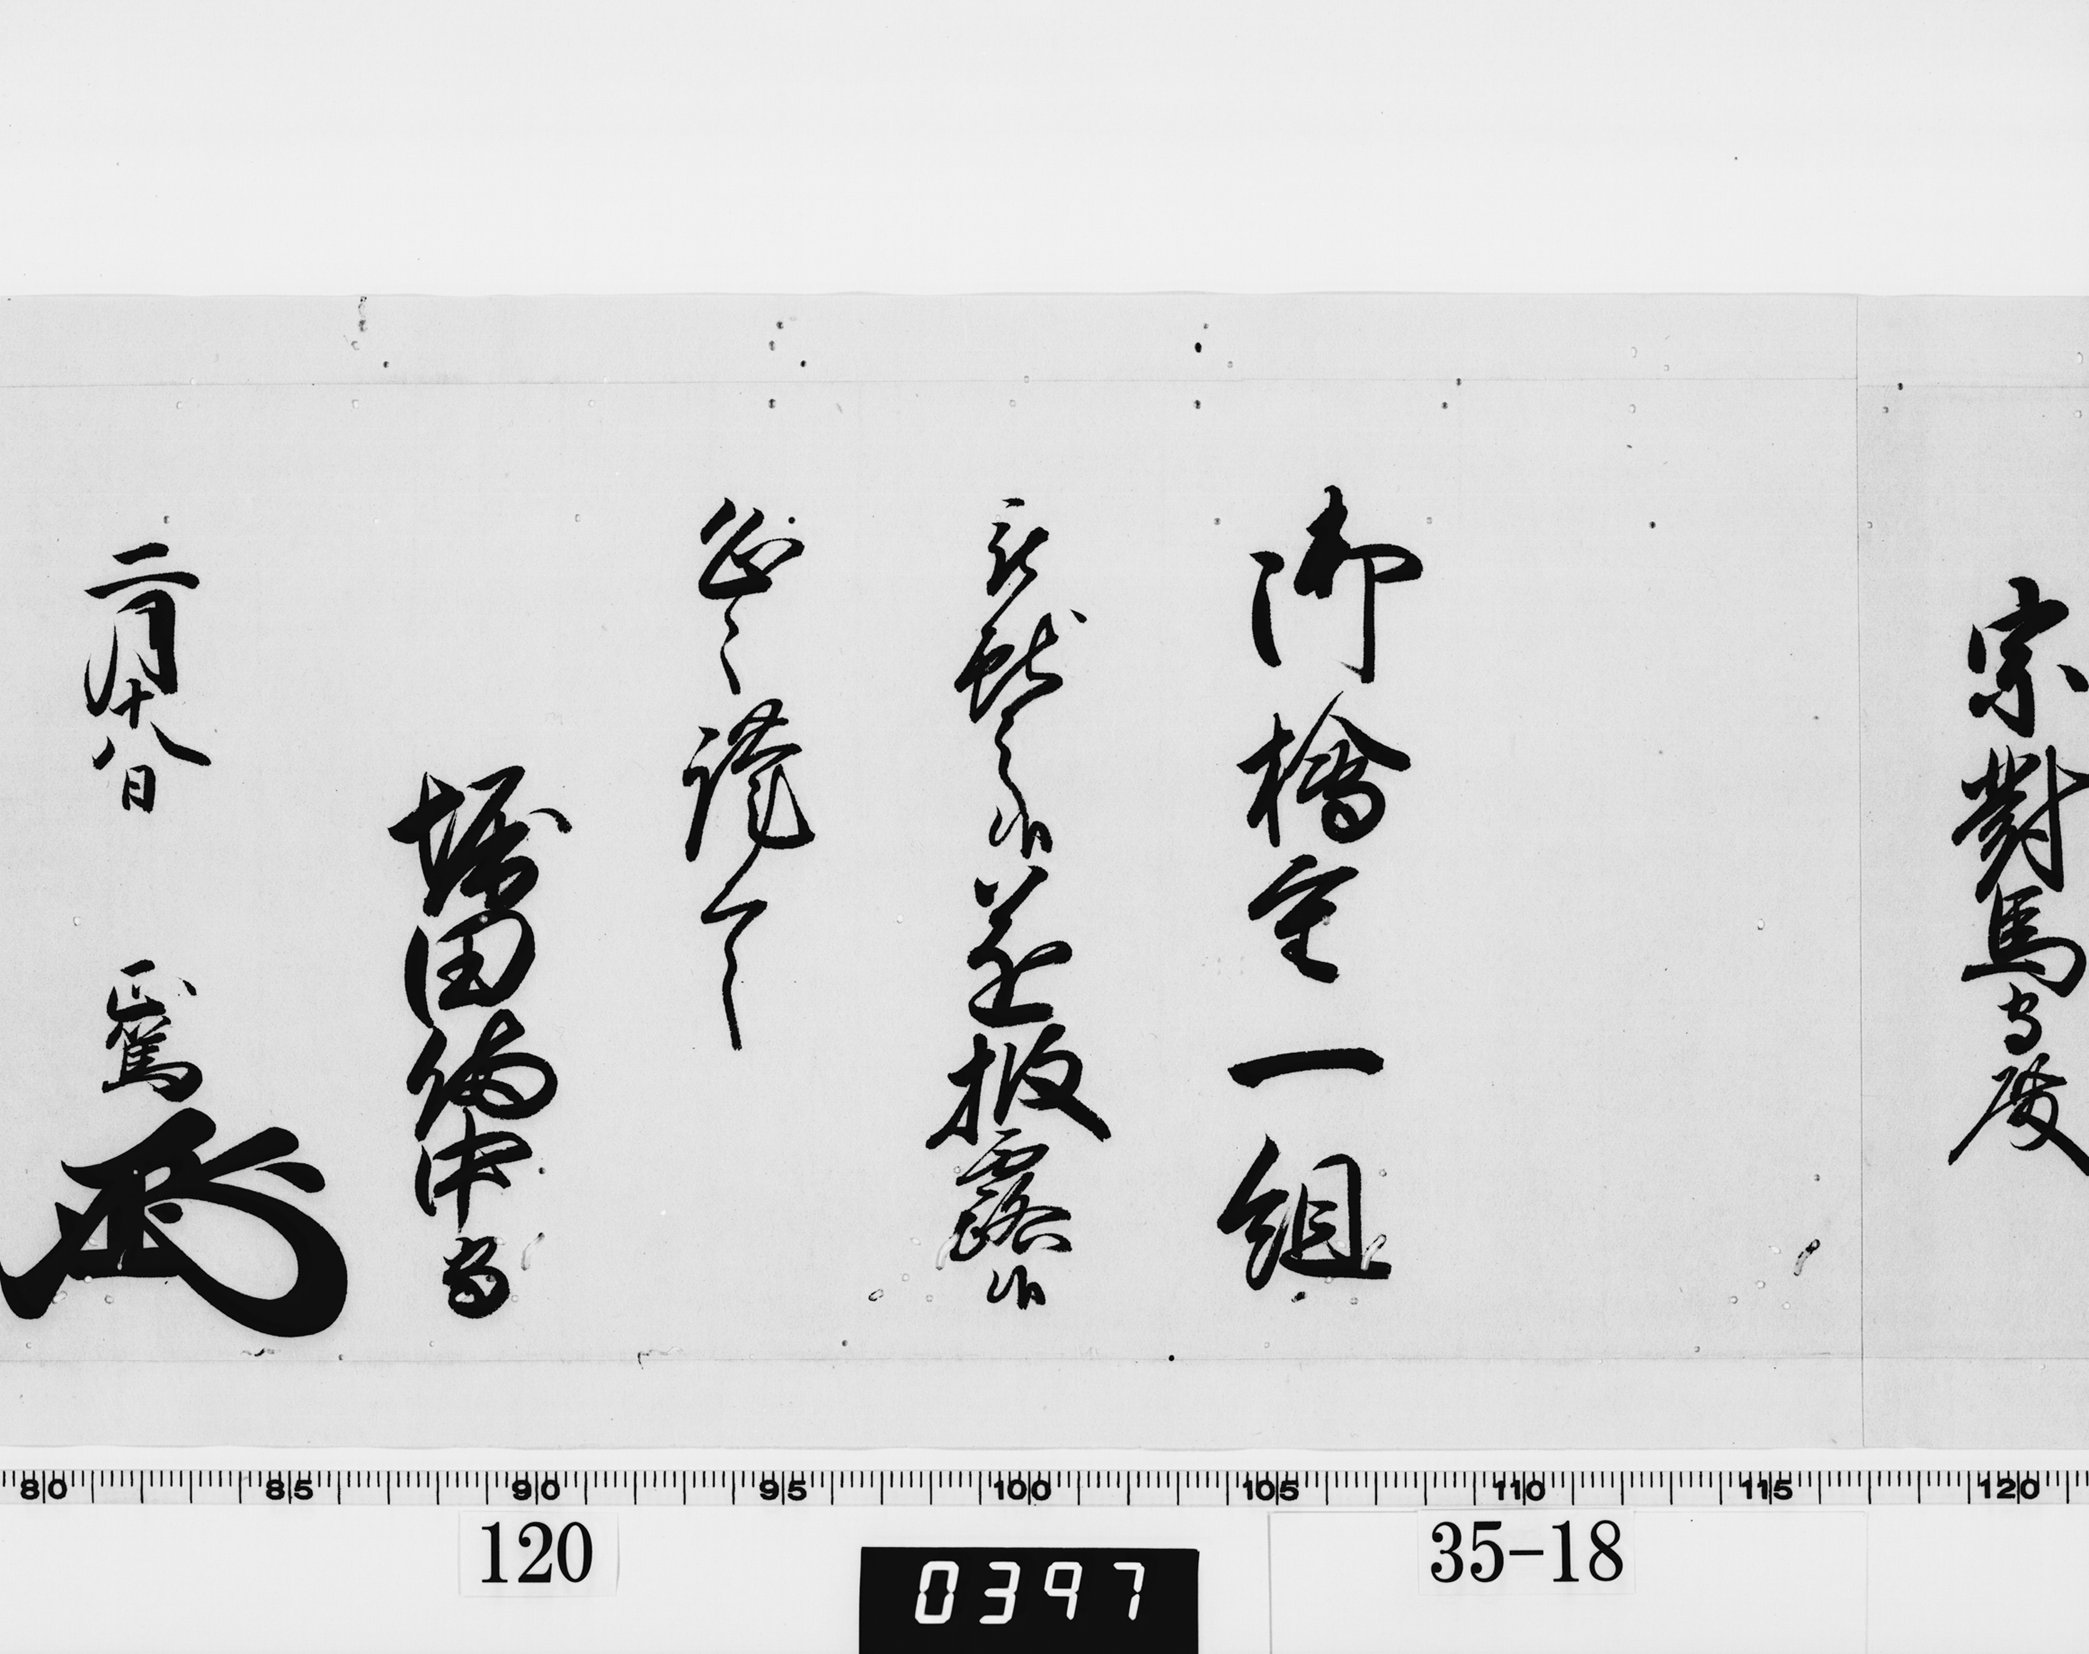 宗對馬守殿
御檜重一組
被獻之候遂披露候
恐々謹言
堀田備中守
二月十八日 正篤
80 85 90 95 100 105 110 115 120
120
35-18
0397